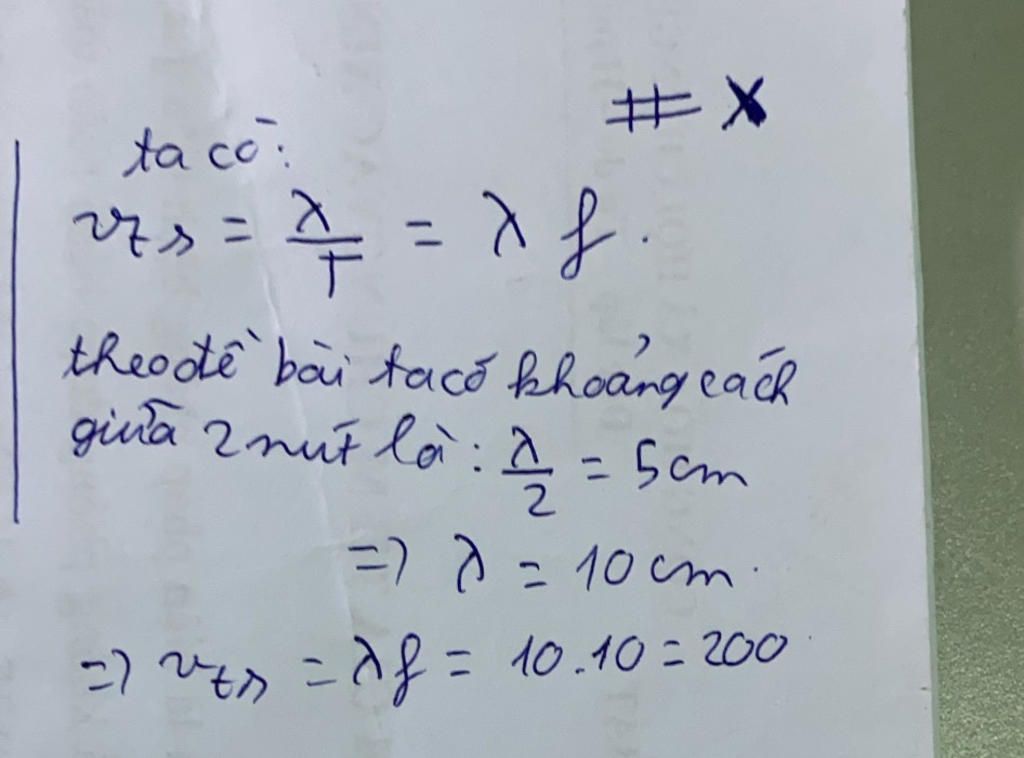 # X
ta có:
v_ts = λ/T = λ f.
theo đề bài ta có khoảng cách
giữa 2 nút là: λ/2 = 5cm
=> λ = 10cm.
=> v_ts = λf = 10.10 = 200